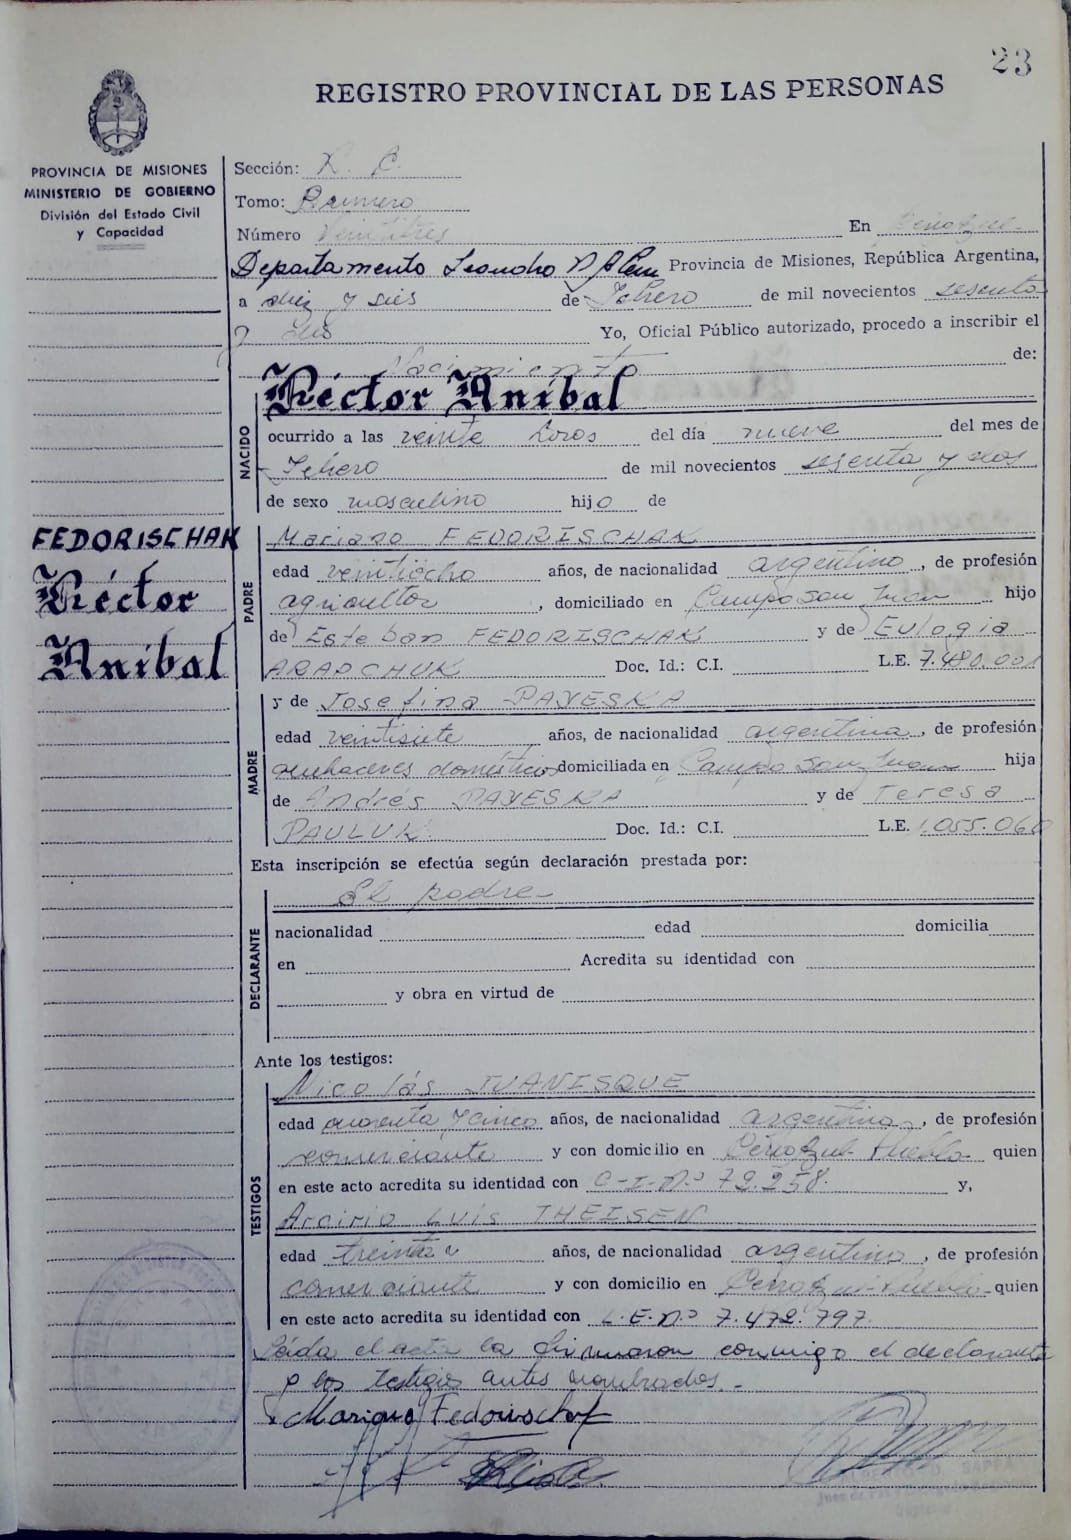 23
REGISTRO PROVINCIAL DE LAS PERSONAS
PROVINCIA DE MISIONES
MINISTERIO DE GOBIERNO
División del Estado Civil
y Capacidad
Sección:
Tomo: Primero
Número Veintitres En
Departamento Leandro N. Alem Provincia de Misiones, República Argentina,
a diez y seis de Febrero de mil novecientos sesenta
y dos Yo, Oficial Público autorizado, procedo a inscribir el
Nacimiento de:
Héctor Aníbal
NACIDO
ocurrido a las veinte horas del día nueve del mes de
Febrero de mil novecientos sesenta y dos
de sexo masculino hijo de
FEDORISCHAK
Héctor
Aníbal
PADRE
Mariano FEDORISCHAK
edad veintiocho años, de nacionalidad argentino, de profesión
agricultor, domiciliado en Campo San Juan hijo
de Esteban FEDORISCHAK y de Eulogia
ARAPCHUK Doc. Id.: C.I. L.E. 7.480.001
MADRE
y de Josefina PAYESKA
edad veintisiete años, de nacionalidad argentina, de profesión
quehaceres domésticos domiciliada en Campo San Juan hija
de Andrés PAYESKA y de Teresa
PAULUK Doc. Id.: C.I. L.E. 1.055.060
Esta inscripción se efectúa según declaración prestada por:
DECLARANTE
El padre-
nacionalidad edad domicilia
en Acredita su identidad con
y obra en virtud de
Ante los testigos:
TESTIGOS
Nicolás IVANISQUE
edad cuarenta y cinco años, de nacionalidad argentino, de profesión
comerciante y con domicilio en Cerro Azul- Pueblo quien
en este acto acredita su identidad con C-I-N.º 72.258. y,
Arcirio Luis THEISEN
edad treinta años, de nacionalidad argentino, de profesión
comerciante y con domicilio en Cerro Azul- Pueblo- quien
en este acto acredita su identidad con L.E.N.º 7.472.797.
Leída el acta la firmaron conmigo el declarante
y los testigos antes nombrados.-
Mariano Fedorischak